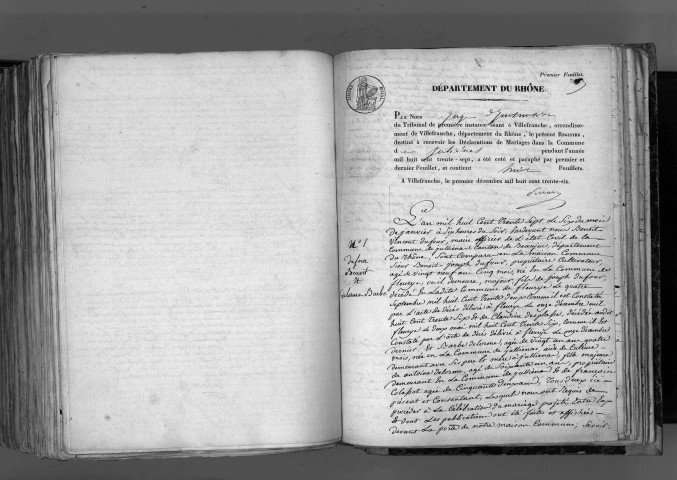 Premier Feuillet.
DÉPARTEMENT DU RHÔNE
PAR NOUS Juge d'Instruction
du Tribunal de première instance séant à Villefranche, arrondisse-
ment de Villefranche, département du Rhône, le présent REGISTRE,
destiné à recevoir les Déclarations de Mariages dans la Commune
de Julienas pendant l'année
mil huit cent trente-sept, a été coté et paraphé par premier et
dernier Feuillet, et contient Feuillets.
A Villefranche, le premier décembre mil huit cent trente-six.
N° 1
dufour
Benoit
&
delorme Barbe
L'an mil huit Cent trente Sept le Six du mois
de janvier à Six heures du Soir, pardevant nous Benoit
Vincent dufour, maire officier de L'état Civil de la
Commune de jullienas Canton de Beaujeu, département
du Rhône, Sont Comparu en La maison Commune
Sieur Benoit joseph dufour, propriétaire Cultivateur,
agé de vingt neuf ans Cinq mois, né en La Commune de
fleurye, ou il demeure, majeur, fils de joseph dufour,
décédé en Ladite Commune de fleurye Le quatre
Septembre mil huit Cent trente deux comme il est Constaté
par L'acte de décès délivré à fleurye Le onze décembre mil
huit Cent trente Six & de Claudine desplaces, décédée audit
fleurye Le douze mai mil huit Cent trente Six, comme il est
Constaté par L'acte de décès délivré à fleurye Le onze décembre
dernier. & Barbe delorme, agée de vingt un ans quatre
mois, née en La Commune de jullienas, où elle
demeurant avec Ses père & mère à jullienas, fille majeure
de antoine delorme, agé de Soixante un ans, propriétaire
demeurant en La Commune de jullienas & de françoise
agée de Cinquante deux ans, Tous deux ici
présent et Consentant, Lesquels nous ont requis de
procéder à La Célébration du mariage projeté entre Eux
& dont Les publications ont été faites et affichées
devant La porte de notre maison Commune, Savoir: